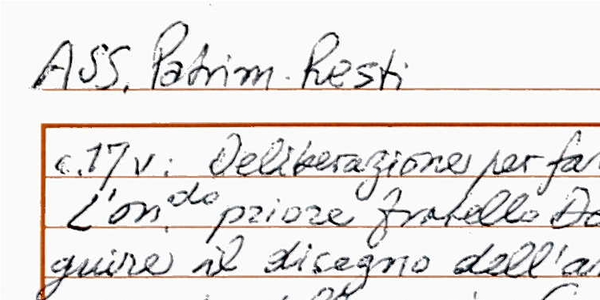 ASS. Patrim. Resti
c.17v: Deliberazione per far
L'on.do priore fratello Do
guire il disegno dell'a